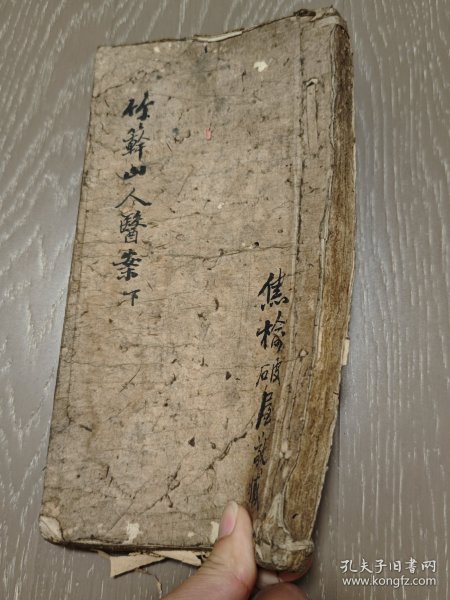 竹簳山人醫案 下
焦桐破屋
孔夫子旧书网
www.kongfz.com